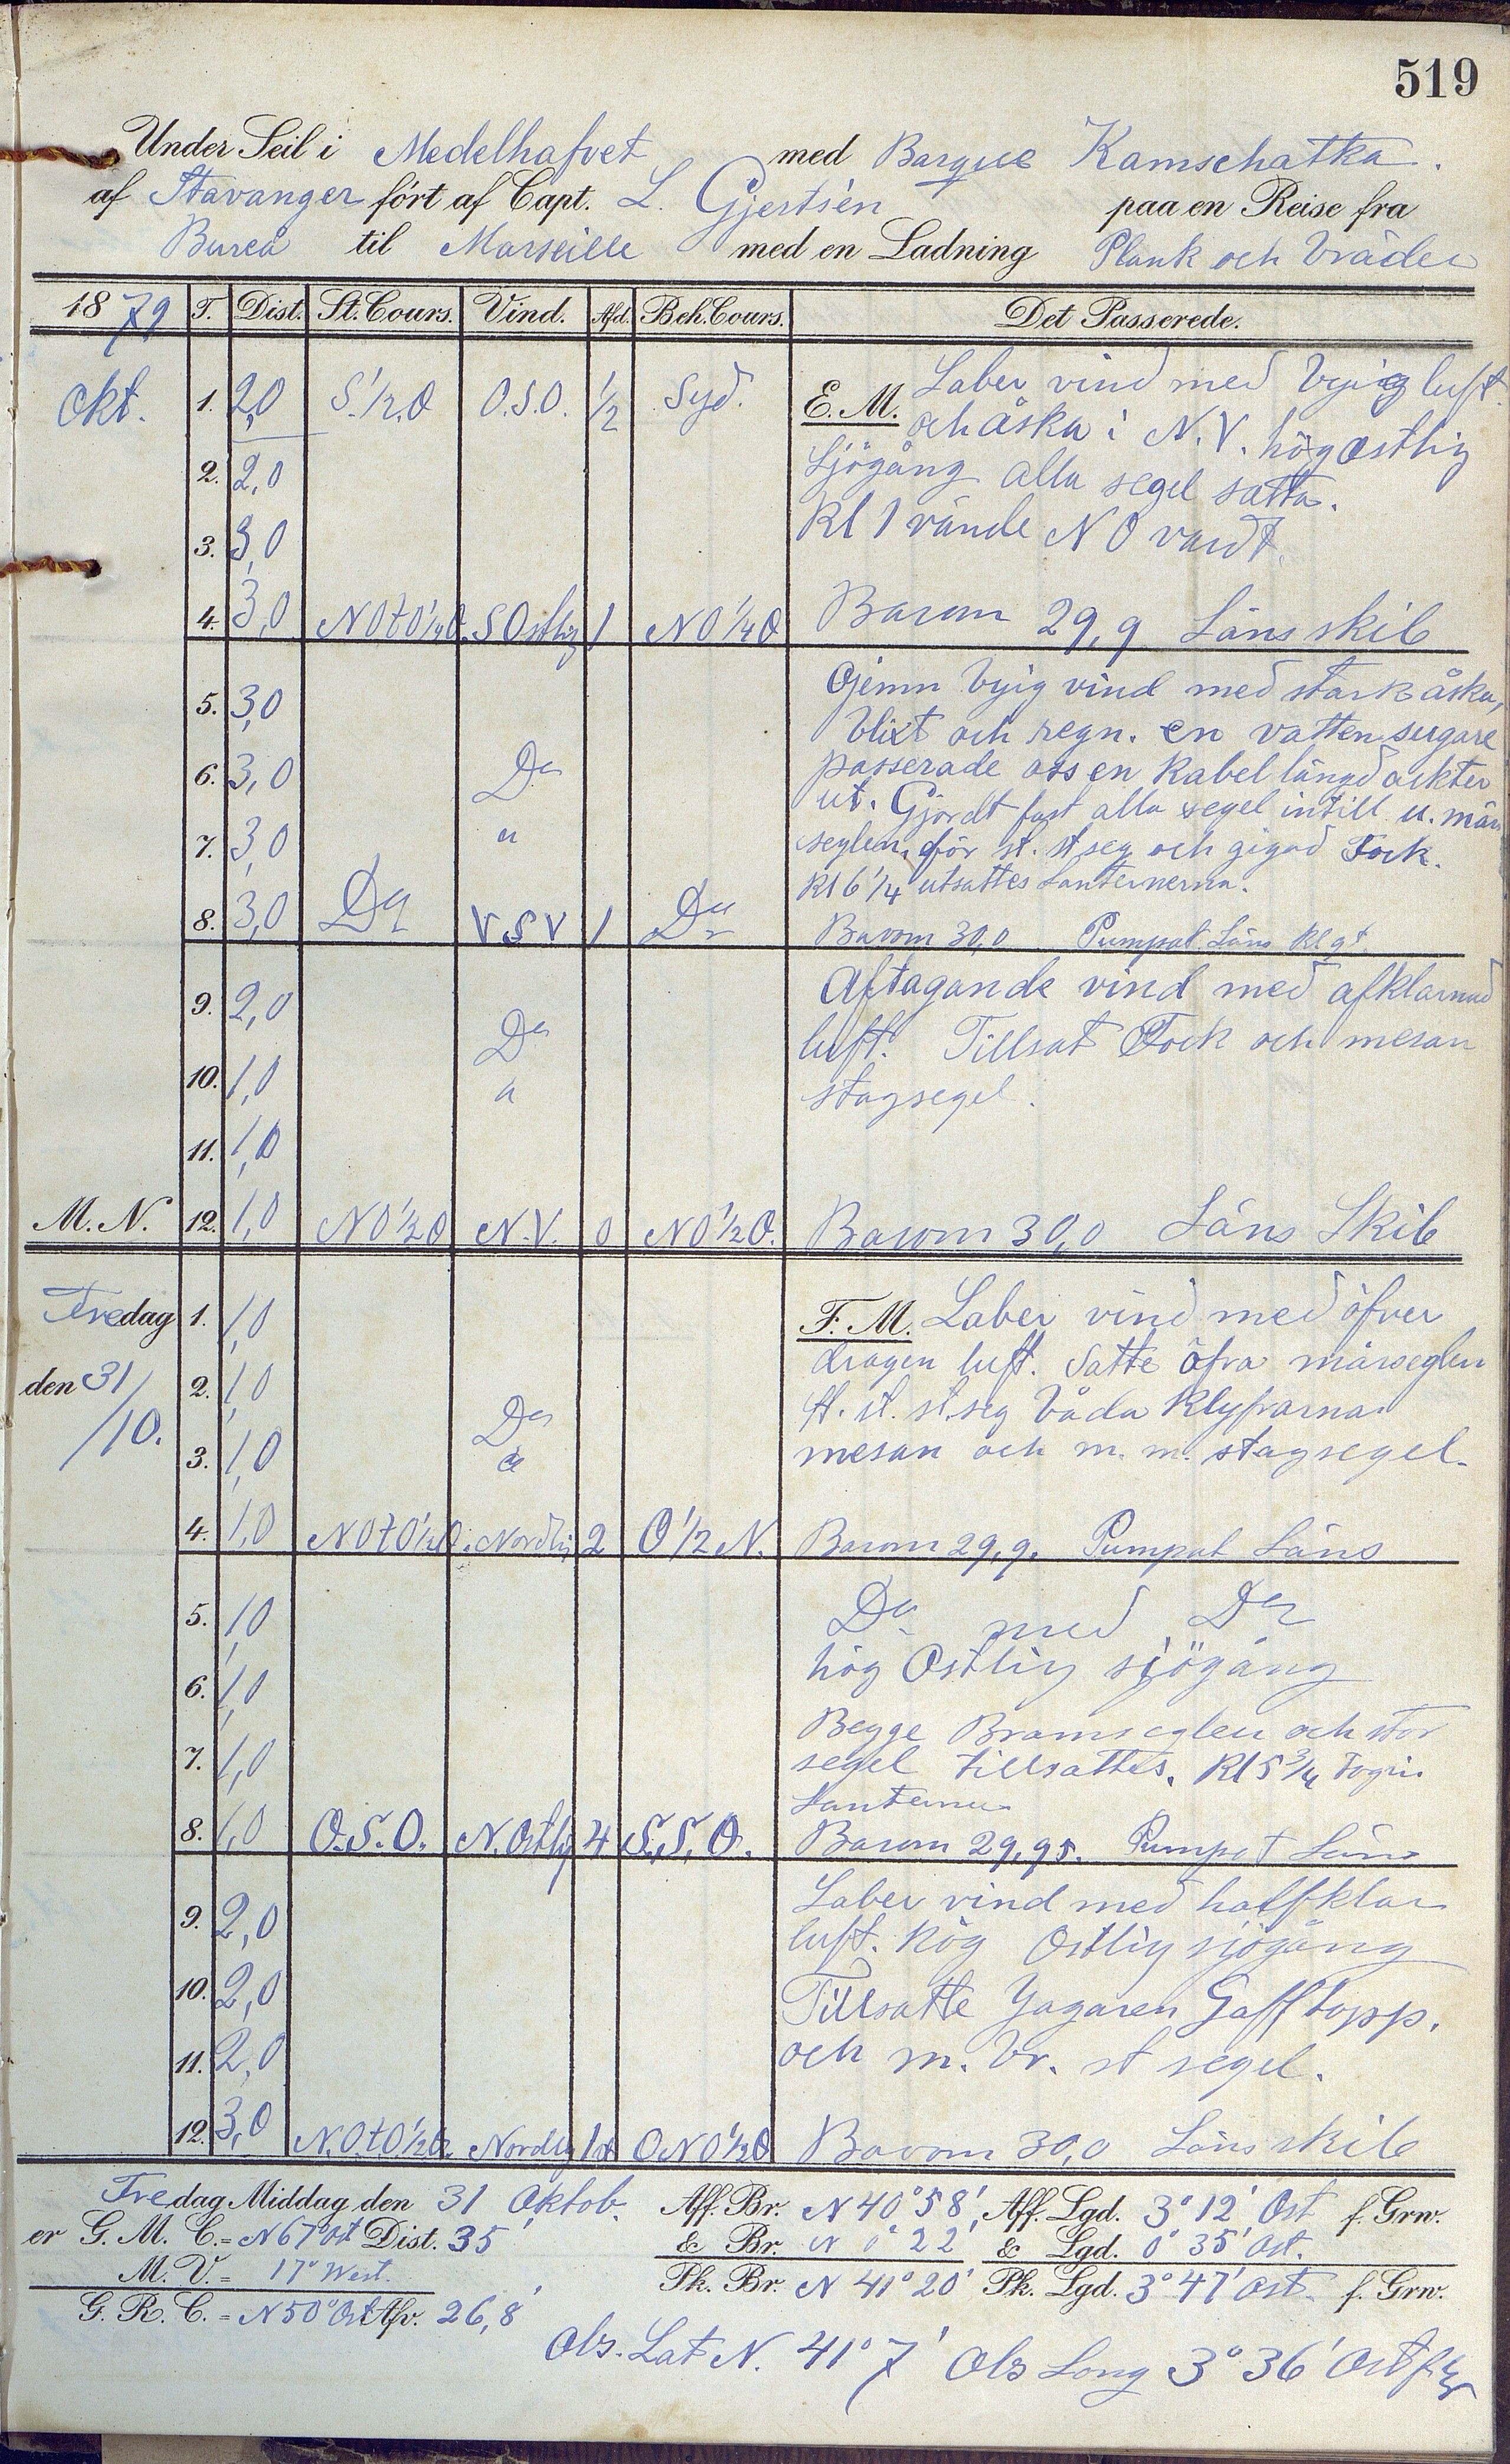 519
Under Seil i Medelhafvet med Barque Kamschatka.
af Stavanger fört af Capt. L. Gjertsén paa en Reise fra
Bureå til Marseille med en Ladning Plank och Bräder
1879 T. Dist. St. Cours. Vind. Afd. Beh. Cours. Det Passerede.
Okt. 1. 2,0 S. 1/2. O O.S.O. 1/2 Syd. E. M. Laber vind med byig luft
och åska i N.V. hög ostlig
2. 2,0 Sjögång alla segel satta.
3. 3,0 Kl 1 vände N O vardt.
4. 3,0 NOtO 1/4 O. SOstlig 1 NO 1/4 O Barom 29,9 Läns skib
5. 3,0 Ojemn byig vind med stark åska,
blixt och regn. en vatten sugare
6. 3,0 Do passerade oss en Kabel längd akter
ut. Gjordt fast alla segel intill u. märs
7. 3,0 " seglen, för st. st seg och gigad Fock.
Kl 6 1/4 utsattes Lanternerna.
8. 3,0 Do V S V 1 Do Barom 30,0 Pumpat Läns Kl
9. 2,0 Aftagande vind med afklarnad
luft. Tillsat Fock och mesan
10. 1,0 Do stagsegel.
11. 1,0
M. N. 12. 1,0 NO 1/2 O N.V. 0 NO 1/2 O. Barom 30,0 Läns Skib
Fredag 1. 1,0 F. M. Laber vind med öfver
den 31/10. 2. 1,0 dragen luft. Satte öfra märseglen
f. st. st.seg båda Klyfvarna
3. 1,0 Do mesan och m. m. stagsegel.
4. 1,0 NOtO 1/2 O. Nordlig 2 O 1/2 N. Barom 29,9. Pumpat Läns
5. 1,0 Do med Do
6. 1,0 hög Ostlig sjögång
Begge Bramseglen och stor
7. 1,0 segel tillsattes. Kl 5 3/4 togs in
Lanternerna
8. 1,0 O.S.O. N.Ostlig 4 S.S.O. Barom 29,95. Pumpat Läns
9. 2,0 Laber vind med halfklar
luft. hög Ostlig sjögång
10. 2,0 Tillsatte Jagaren Gafftopp.
11. 2,0 och m. br. st segel.
12. 3,0 N.O.tO 1/2 O. Nordlig 1 st ONO 1/2 O Barom 30,0 Läns skib
Fredag Middag den 31 Oktob. Aff. Br. N 40° 58', Aff. Lgd. 3° 12' Ost f. Grw.
er G. M. C. = N 67° Ost Dist. 35' & Br. N 0° 22' & Lgd. 0° 35' Ost.
M. V. = 17° West. Pk. Br. N 41° 20' Pk. Lgd. 3° 47' Ost. f. Grw.
G. R. C. = N 50° Ost Afv. 26,8'
Obs. Lat N. 41° 7' Obs Long 3° 36' Ost f.